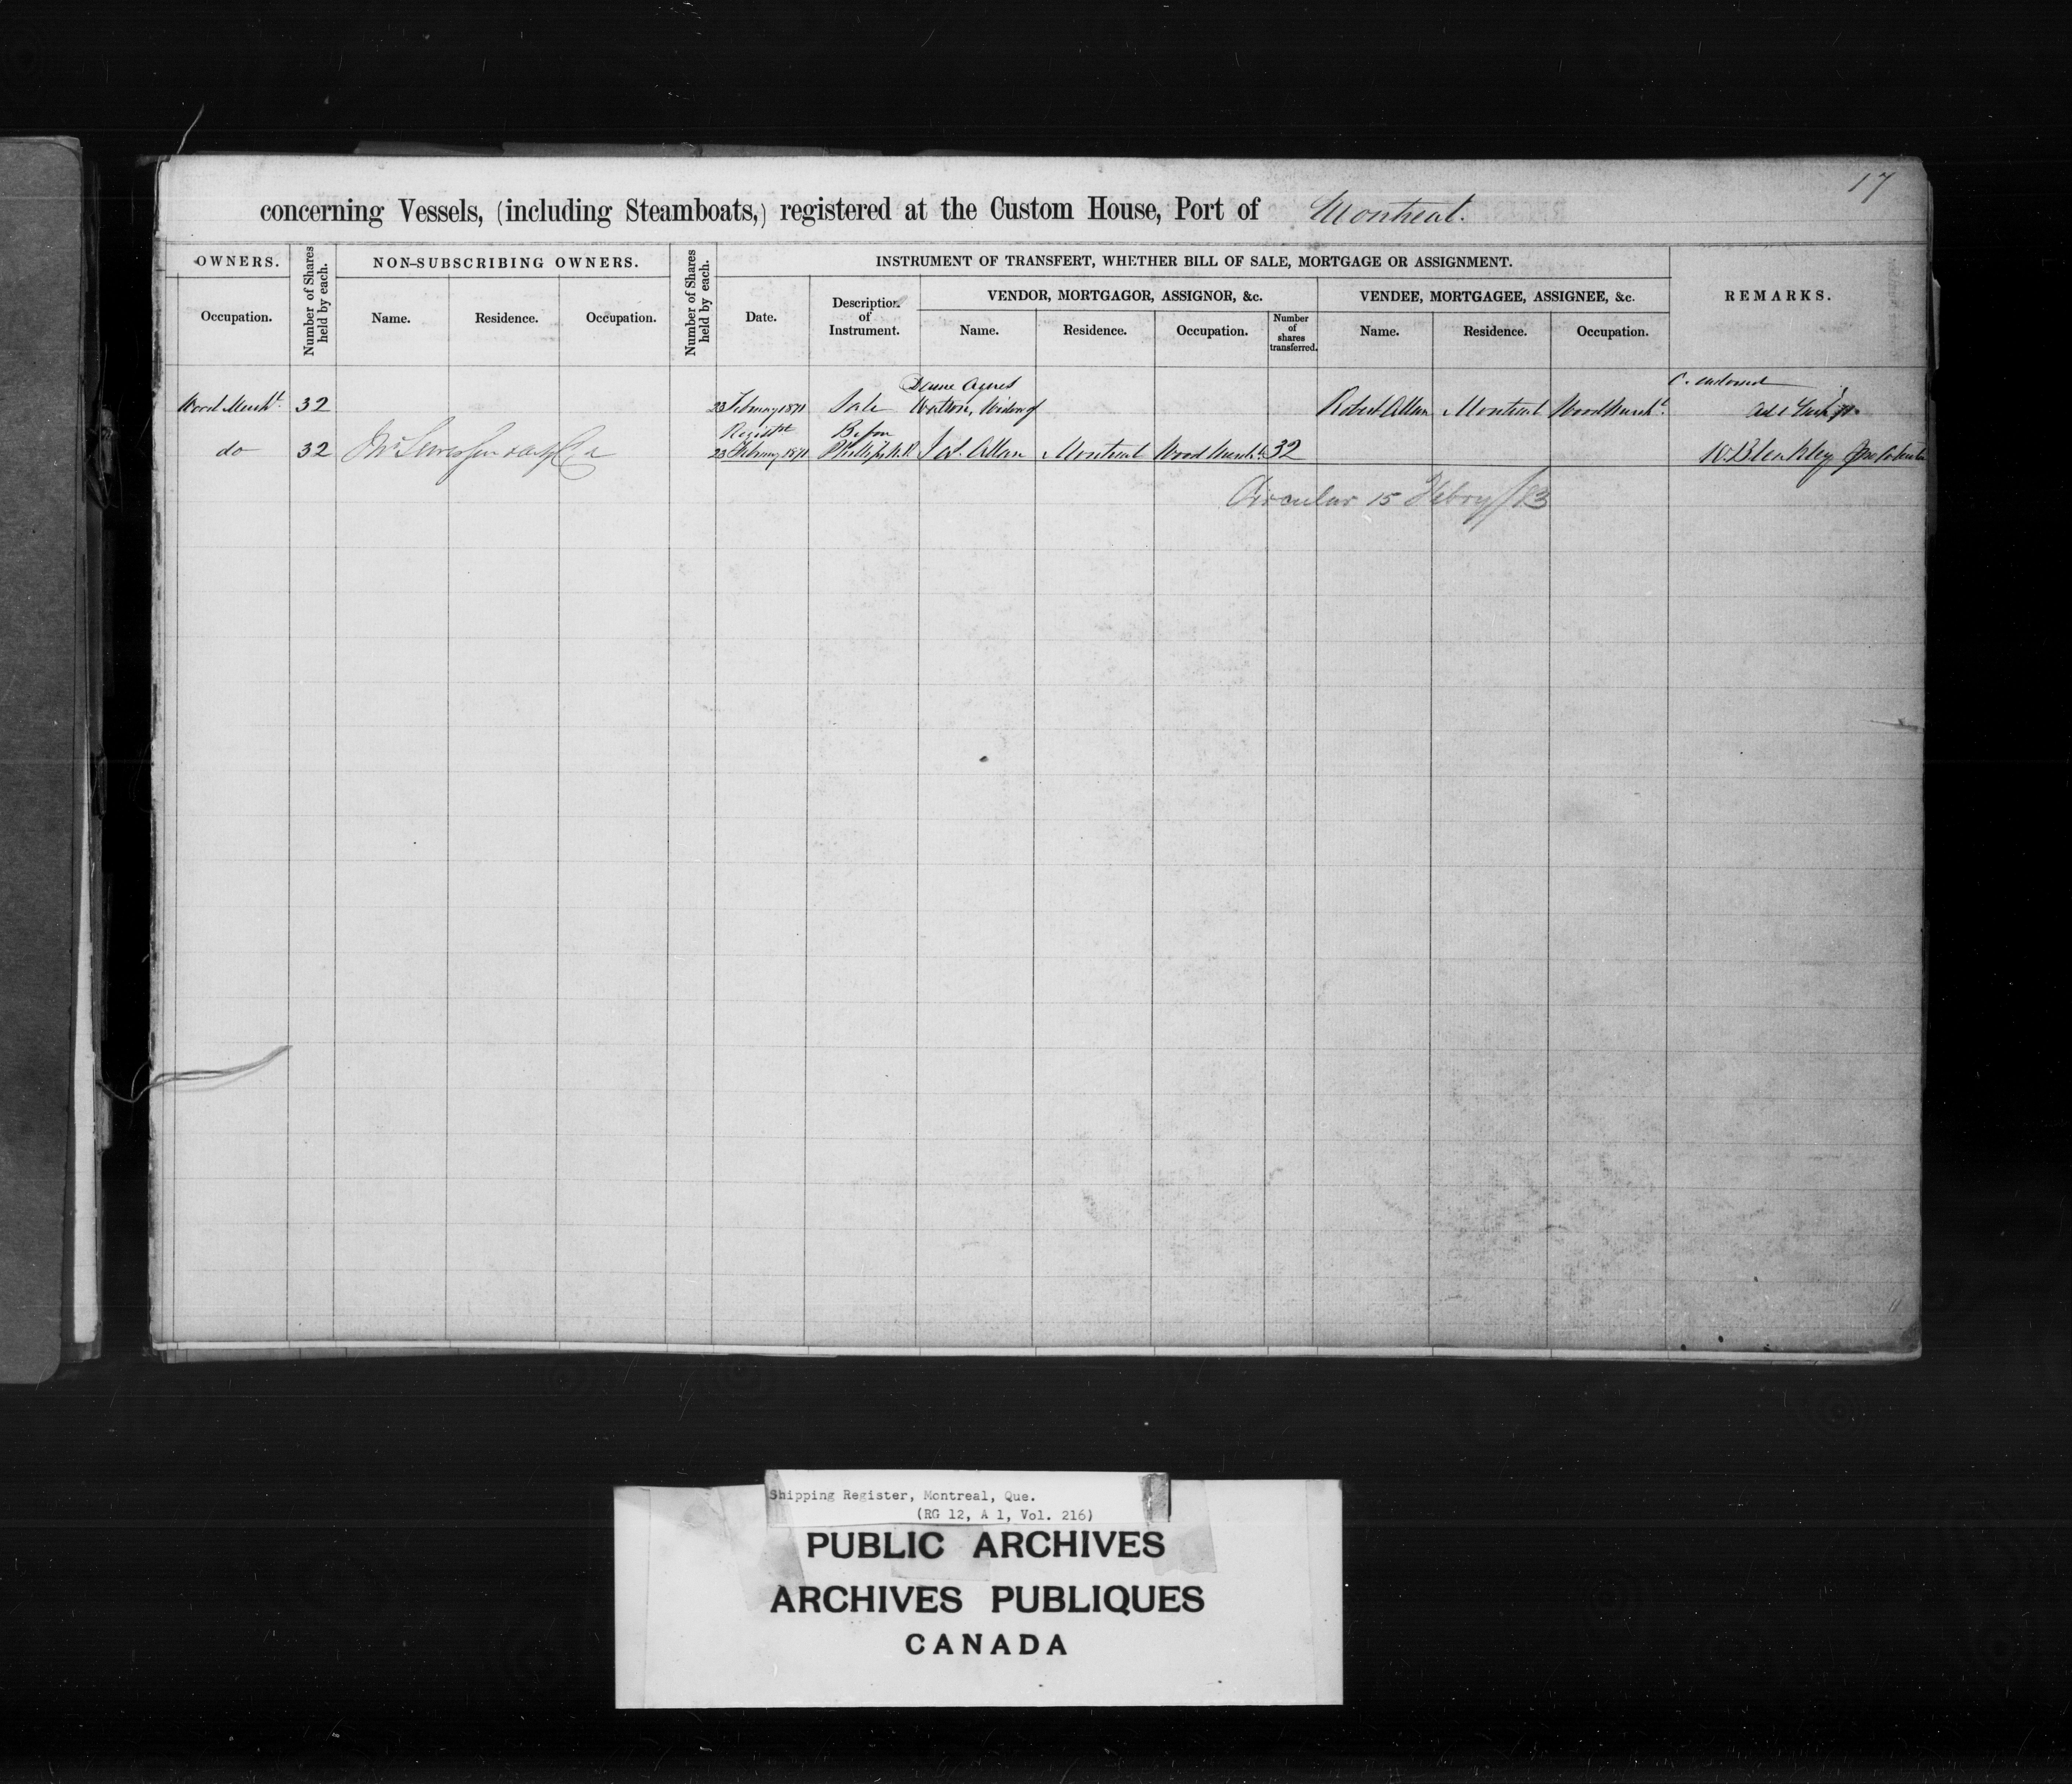 17
concerning Vessels, (including Steamboats,) registered at the Custom House, Port of Montreal.
OWNERS.
Occupation.
Number of Shares held by each.
NON-SUBSCRIBING OWNERS.
Name. Residence. Occupation.
Number of Shares held by each.
INSTRUMENT OF TRANSFERT, WHETHER BILL OF SALE, MORTGAGE OR ASSIGNMENT.
Date.
Description of Instrument.
VENDOR, MORTGAGOR, ASSIGNOR, &c.
Name. Residence. Occupation.
Number of shares transferred.
VENDEE, MORTGAGEE, ASSIGNEE, &c.
Name. Residence. Occupation.
REMARKS.
Dame Agnes
Wood Mercht. 32 23 February 1871 Sale Watson, Widow of Robert Allan Montreal Wood Mercht.
Before
do 32 23 February 1871 Allan Montreal Wood Mercht. 32 W. Bleakley
Circular 15 Febry/83
Shipping Register, Montreal, Que.
(RG 12, A 1, Vol. 216)
PUBLIC ARCHIVES
ARCHIVES PUBLIQUES
CANADA